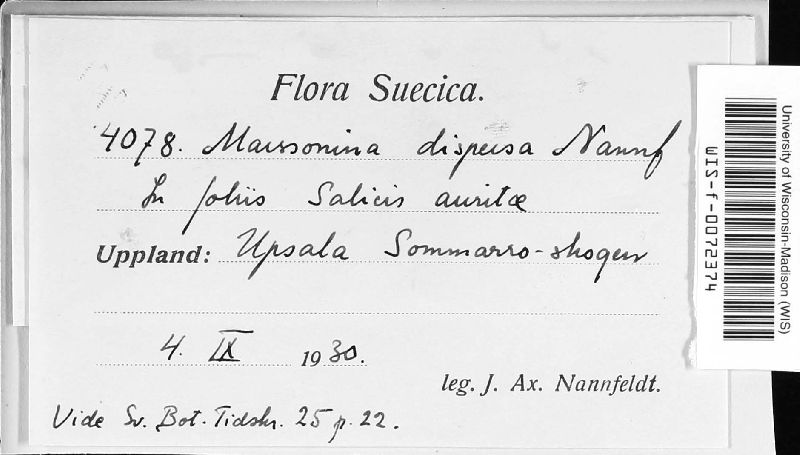 Flora Suecica.
4078. Marssonina dispersa Nannf
In foliis Salicis auritæ
Uppland: Upsala Sommarro-skogen
4. IX 1930.
leg. J. Ax. Nannfeldt.
Vide Sv. Bot. Tidskr. 25 p. 22.
University of Wisconsin-Madison (WIS)
WIS-f-0072374